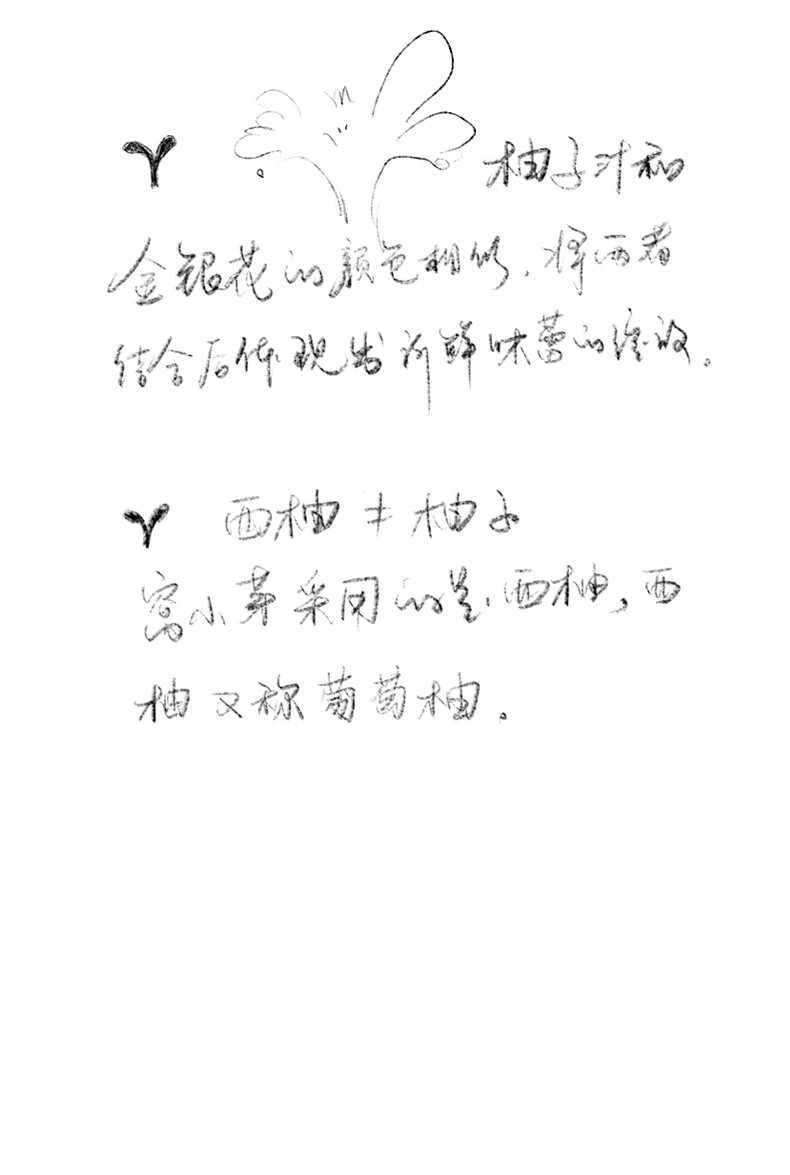 柚子汁和
金银花的颜色相似,将两者
结合后体现出新鲜味蕾的绽放。
西柚≠柚子
窝小芽采用的是西柚,西
柚又称葡萄柚。